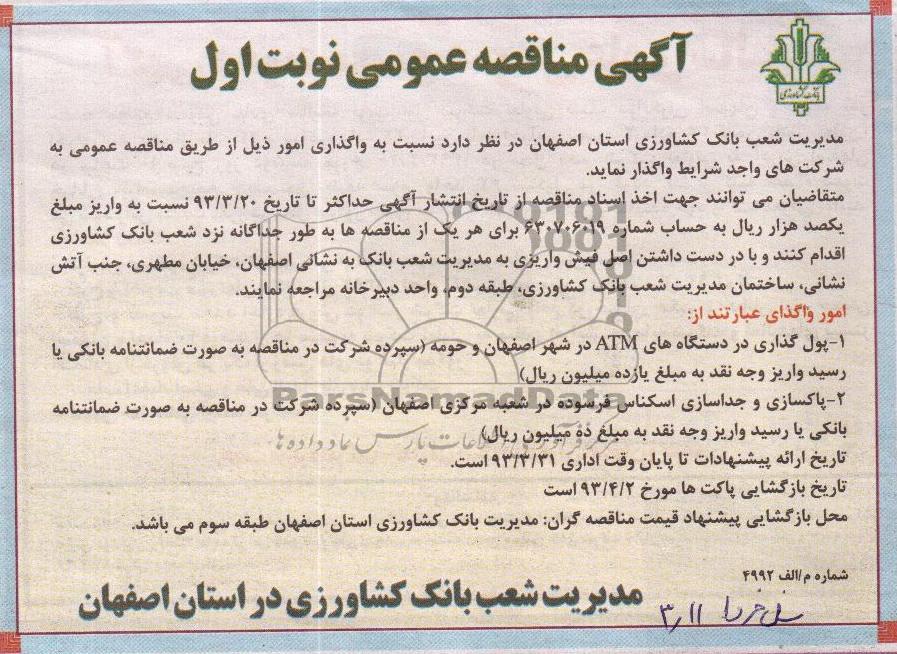 آگهی مناقصه عمومی نوبت اول
بانک کشاورزی
مدیریت شعب بانک کشاورزی استان اصفهان در نظر دارد نسبت به واگذاری امور ذیل از طریق مناقصه عمومی به
شرکت های واجد شرایط واگذار نماید.
متقاضیان می توانند جهت اخذ اسناد مناقصه از تاریخ انتشار آگهی حداکثر تا تاریخ ۹۳/۳/۲۰ نسبت به واریز مبلغ
یکصد هزار ریال به حساب شماره ۶۳۰۷۰۶۰۱۹ برای هر یک از مناقصه ها به طور جداگانه نزد شعب بانک کشاورزی
اقدام کنند و با در دست داشتن اصل فیش واریزی به مدیریت شعب بانک به نشانی اصفهان، خیابان مطهری، جنب آتش
نشانی، ساختمان مدیریت شعب بانک کشاورزی، طبقه دوم، واحد دبیرخانه مراجعه نمایند.
امور واگذای عبارتند از:
۱-پول گذاری در دستگاه های ATM در شهر اصفهان و حومه (سپرده شرکت در مناقصه به صورت ضمانتنامه بانکی یا
رسید واریز وجه نقد به مبلغ یازده میلیون ریال)
۲-پاکسازی و جداسازی اسکناس فرسوده در شعبه مرکزی اصفهان (سپرده شرکت در مناقصه به صورت ضمانتنامه
بانکی یا رسید واریز وجه نقد به مبلغ ده میلیون ریال)
تاریخ ارائه پیشنهادات تا پایان وقت اداری ۹۳/۳/۳۱ است.
تاریخ بازگشایی پاکت ها مورخ ۹۳/۴/۲ است
محل بازگشایی پیشنهاد قیمت مناقصه گران: مدیریت بانک کشاورزی استان اصفهان طبقه سوم می باشد.
شماره م/الف ۴۹۹۲
مدیریت شعب بانک کشاورزی در استان اصفهان
۳/۱۱
ParsNamadData